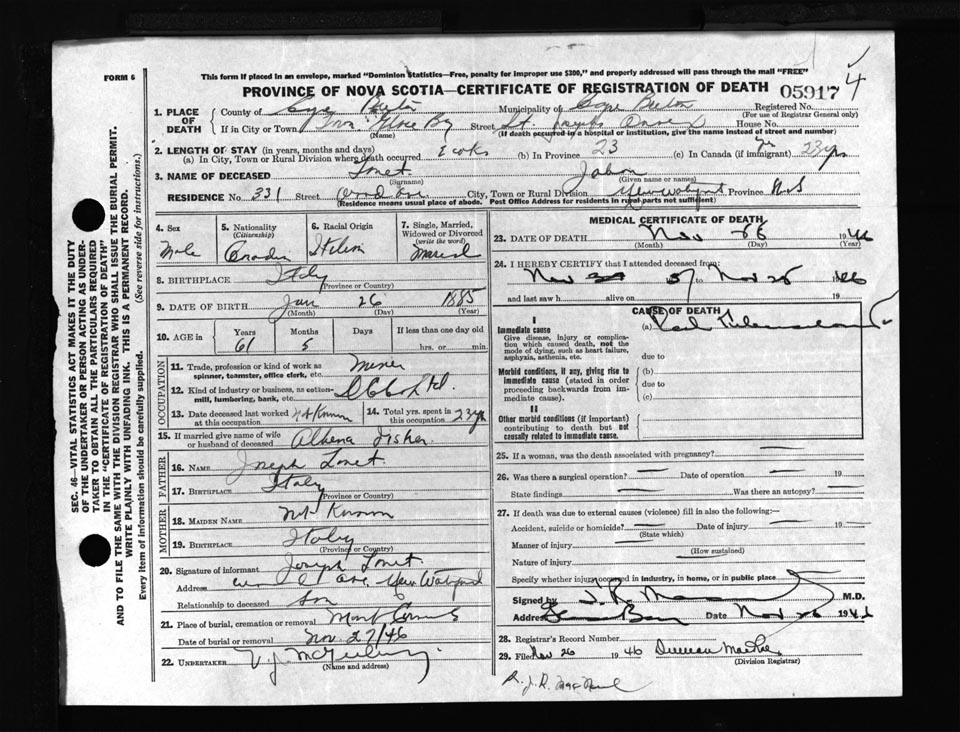 FORM 6
This form if placed in an envelope, marked "Dominion Statistics—Free, penalty for improper use $300," and properly addressed will pass through the mail "FREE"
4
PROVINCE OF NOVA SCOTIA—CERTIFICATE OF REGISTRATION OF DEATH 05917
1. PLACE OF DEATH
County of Cape Breton Municipality of Cape Breton Registered No.
(For use of Registrar General only)
If in City or Town Glace Bay Street St. Josephs House No.
(Name) (If death occurred in a hospital or institution, give the name instead of street and number)
2. LENGTH OF STAY (in years, months and days)
(a) In City, Town or Rural Division where death occurred (b) In Province 23 (c) In Canada (if immigrant) 23 yrs
3. NAME OF DECEASED
(Surname) (Given name or names)
RESIDENCE No. 331 Street City, Town or Rural Division New Waterford Province N.S
(Residence means usual place of abode. Post Office Address for residents in rural parts not sufficient)
4. Sex Male
5. Nationality (Citizenship)
6. Racial Origin Italian
7. Single, Married, Widowed or Divorced (write the word) Married
8. BIRTHPLACE Italy
(Province or Country)
9. DATE OF BIRTH Jan 26 1885
(Month) (Day) (Year)
10. AGE in Years Months Days If less than one day old
61 hrs. or min.
OCCUPATION
11. Trade, profession or kind of work as spinner, teamster, office clerk, etc. Miner
12. Kind of industry or business, as cotton-mill, lumbering, bank, etc. Ltd.
13. Date deceased last worked at this occupation Not Known
14. Total yrs. spent in this occupation 23 yrs
15. If married give name of wife or husband of deceased Albena Fisher
FATHER
16. NAME Joseph
17. BIRTHPLACE Italy
(Province or Country)
MOTHER
18. MAIDEN NAME Not Known
19. BIRTHPLACE Italy
(Province or Country)
20. Signature of informant Joseph
Address Ave. New Waterford
Relationship to deceased Son
21. Place of burial, cremation or removal Mount Carmel
Date of burial or removal Nov. 27/46
22. UNDERTAKER V. J.
(Name and address)
MEDICAL CERTIFICATE OF DEATH
23. DATE OF DEATH Nov 26 1946
(Month) (Day) (Year)
24. I HEREBY CERTIFY that I attended deceased from:
Nov to Nov 1946
and last saw h alive on 19
CAUSE OF DEATH
I
Immediate cause
Give disease, injury or complication which caused death, not the mode of dying, such as heart failure, asphyxia, asthenia, etc.
(a)
due to
Morbid conditions, if any, giving rise to immediate cause (stated in order proceeding backwards from immediate cause).
(b)
due to
(c)
II
Other morbid conditions (if important) contributing to death but not causally related to immediate cause.
25. If a woman, was the death associated with pregnancy?
26. Was there a surgical operation? Date of operation 19
State findings Was there an autopsy?
27. If death was due to external causes (violence) fill in also the following:—
Accident, suicide or homicide? Date of injury 19
(State which)
Manner of injury
(How sustained)
Nature of injury
Specify whether injury occurred in industry, in home, or in public place
Signed by J. R. M.D.
Address Date Nov 26 1946
28. Registrar's Record Number
29. Filed Nov 26 1946 Duncan
(Division Registrar)
SEC. 46—VITAL STATISTICS ACT MAKES IT THE DUTY
OF THE UNDERTAKER OR PERSON ACTING AS UNDER-
TAKER TO OBTAIN ALL THE PARTICULARS REQUIRED
IN THE "CERTIFICATE OF REGISTRATION OF DEATH"
AND TO FILE THE SAME WITH THE DIVISION REGISTRAR WHO SHALL ISSUE THE BURIAL PERMIT.
WRITE PLAINLY WITH UNFADING INK. THIS IS A PERMANENT RECORD.
Every item of information should be carefully supplied. (See reverse side for instructions.)